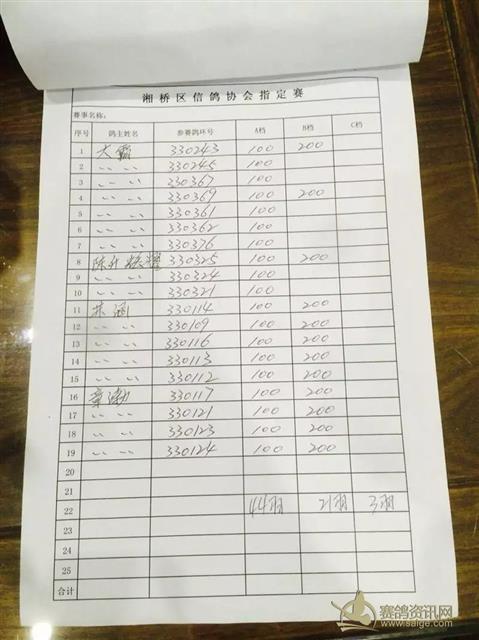 湘桥区信鸽协会指定赛
赛事名称:
序号 鸽主姓名 参赛鸽环号 A档 B档 C档
1 大霸 330243 100 200
2 〃 〃 330245 100
3 〃 〃 330367 100
4 〃 〃 330369 100 200
5 〃 〃 330361 100
6 〃 〃 330362 100
7 〃 〃 330376 100
8 330325 100 200
9 〃 〃 330324 100
10 〃 〃 330321 100
11 330114 100 200
12 〃 〃 330109 100 200
13 〃 〃 330116 100 200
14 〃 〃 330113 100 200
15 〃 〃 330112 100 200
16 330117 100 200
17 〃 〃 330121 100 200
18 〃 〃 330123 100 200
19 〃 〃 330124 100 200
20
21
22 44羽 21羽 3羽
23
24
25
合计
赛鸽资讯网
www.saige.com